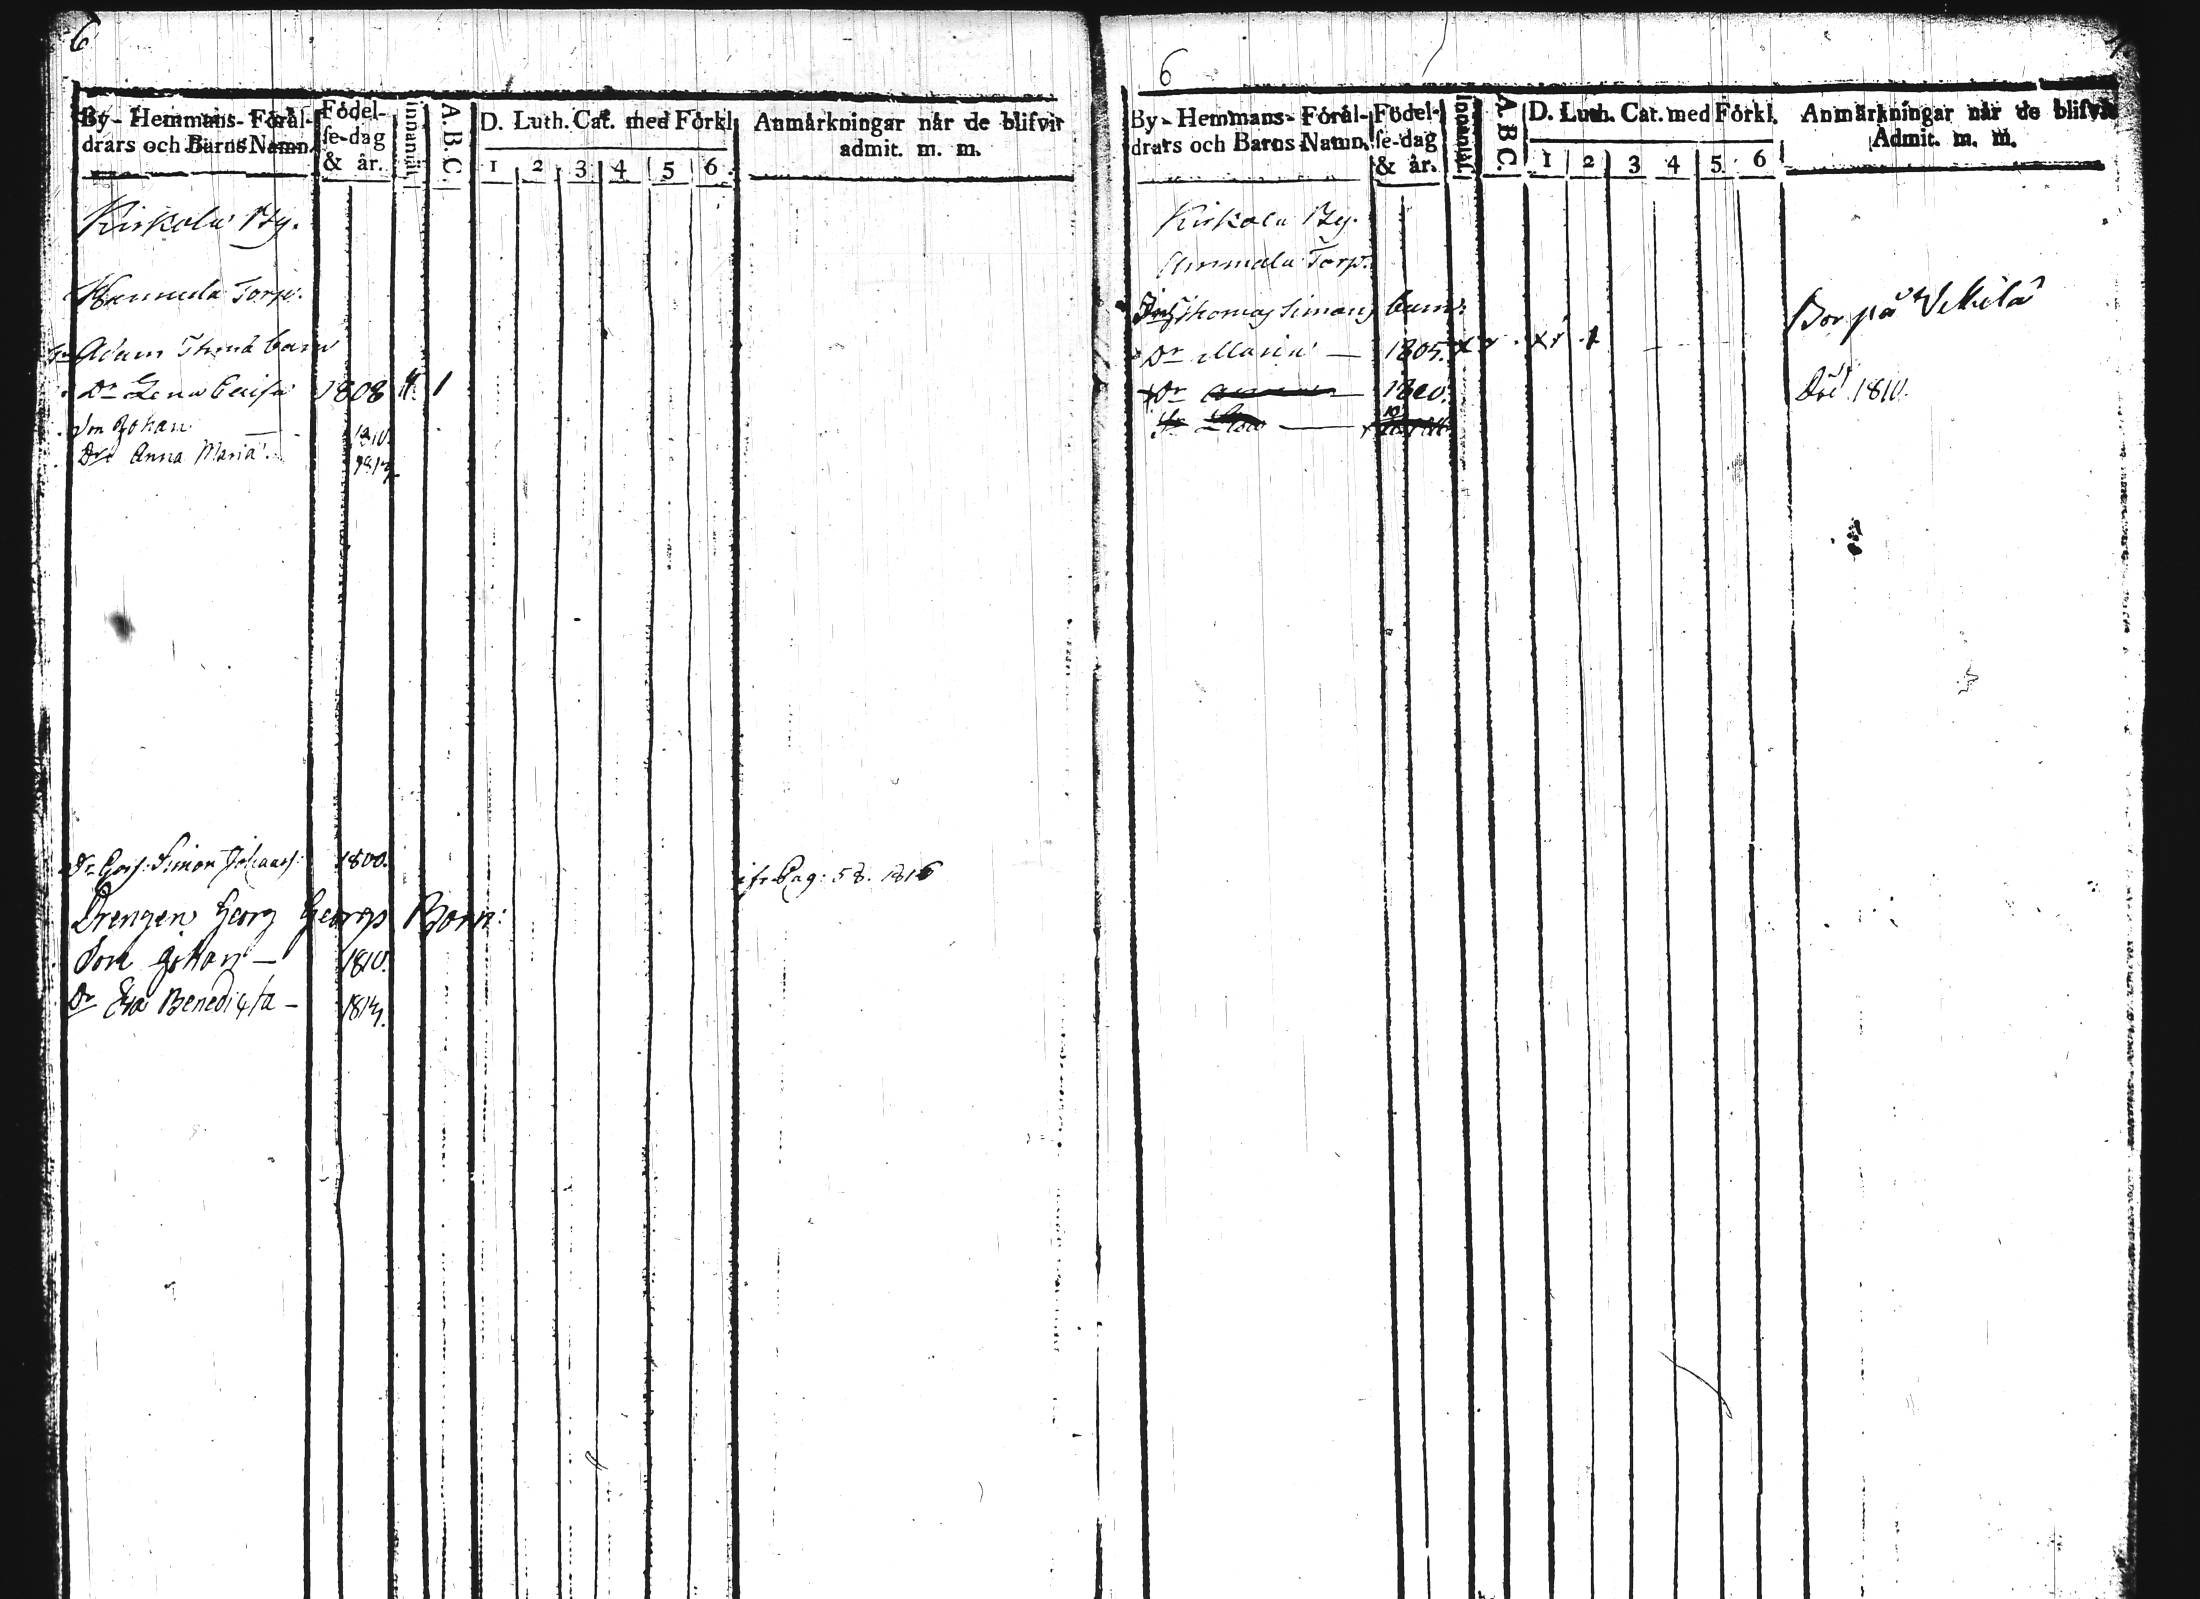 6
By- Hemmans- Föräl-
drars och Barns Namn.
Födel-
se-dag
& år.
Innantil.
A.B.C.
D. Luth. Cat. med Förkl.
1 2 3 4 5 6
Anmärkningar når de blifvit
admit. m. m.
Kirkola By.
Hannula Torp.
Adam Thomæ barn
Dr Lena Caisa 1808
Son Johan — 1810.
Dr Anna Maria.
Simon 1800.
fr Pag: 58. 1816
Drengen Georg Georgs Barn:
Son Johan — 1810.
Dr Eva Benedicta — 1813.
6
By- Hemmans- Föräl-
drars och Barns Namn.
Födel-
se-dag
& år.
Innantil.
A.B.C.
D. Luth. Cat. med Förkl.
1 2 3 4 5 6
Anmärkningar når de blifvit
Admit. m. m.
Kirkola By.
Ammala Torp.
Thomas Simons barn:
Bor på
Dr Maria — 1805.
Dr — 1810.
Död 1810.